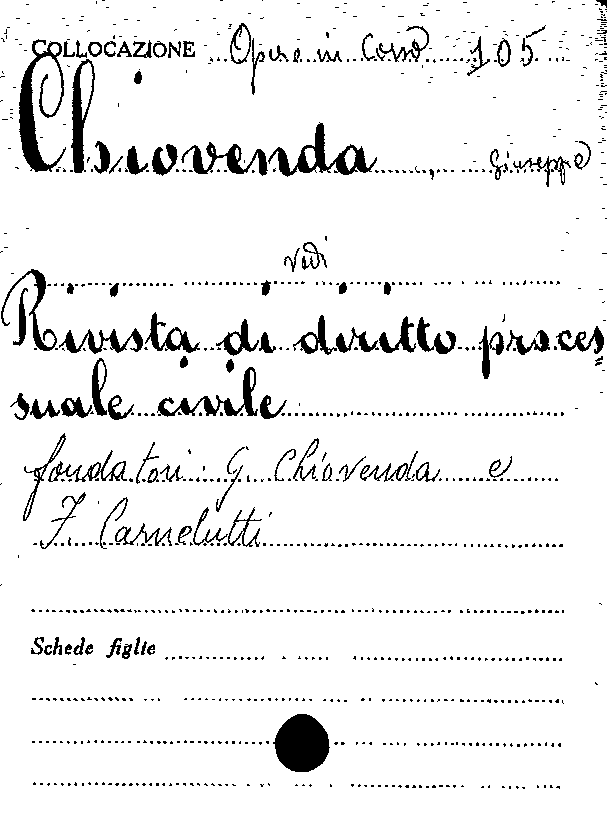 COLLOCAZIONE Opere in Corso 105
Chiovenda, Giuseppe
vedi
Rivista di diritto proces
suale civile
fondatori: G. Chiovenda e
F. Carnelutti
Schede figlie